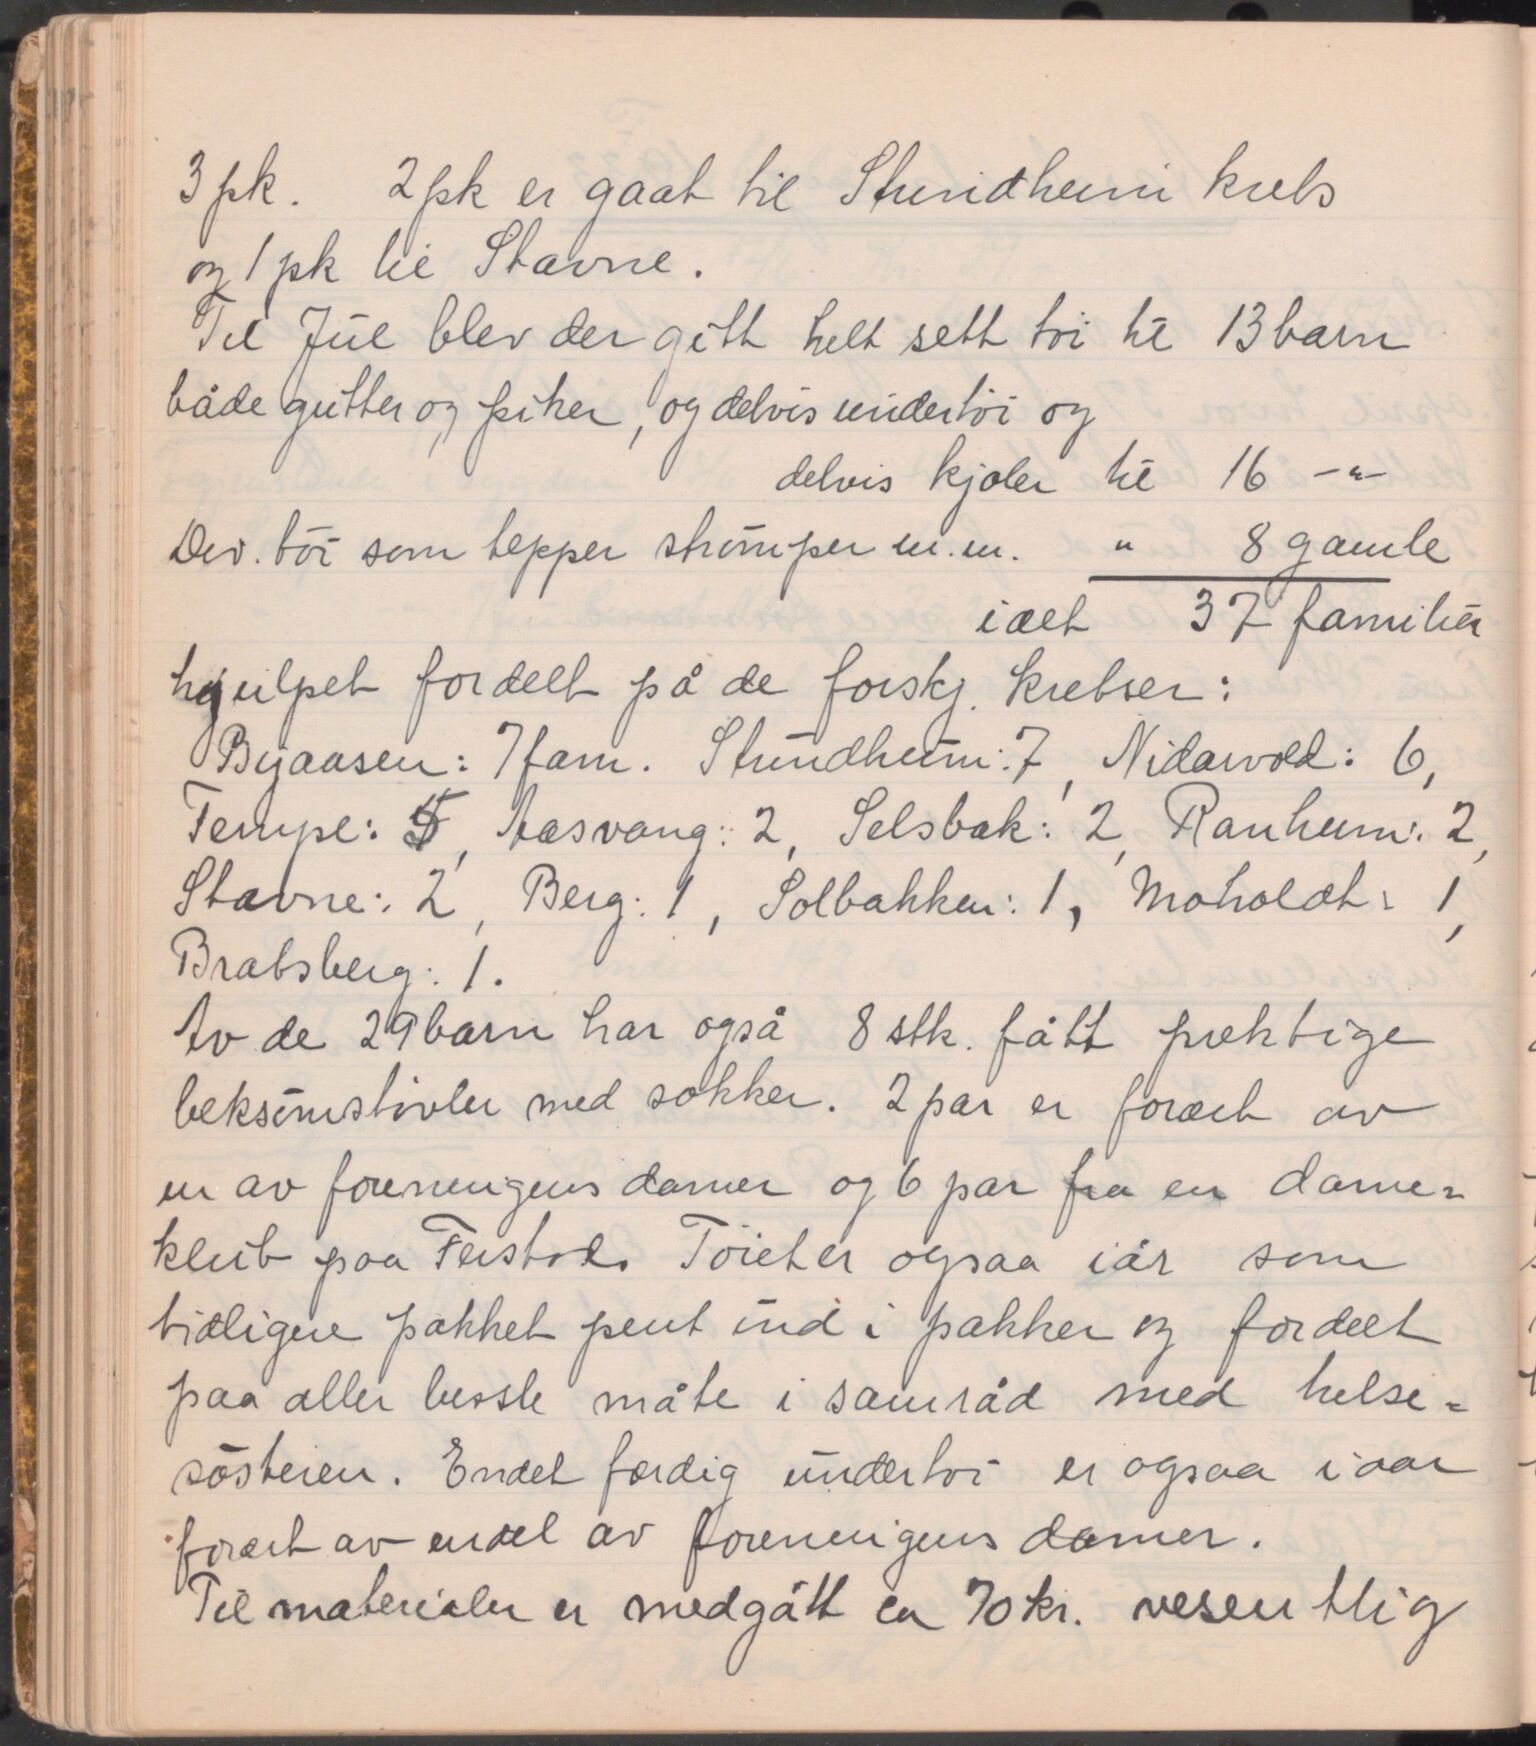 3 pk. 2 pk er gaat til Strindheim krets
og 1 pk til Stavne.
Til Jul blev der gitt helt sett tøi til 13 barn
både gutter og piker, og delvis undertøi og
delvis kjoler til 16 -"-
Div. tøi som tepper strømper m.m. " 8 gamle
ialt 37 familier
hjulpet fordelt på de forskj. kretser:
Byaasen: 7 fam. Strindheim: 7, Nidarvold: 6,
Tempe: 5, Aasvang: 2, Selsbak: 2, Ranheim: 2,
Stavne: 2, Berg: 1, Solbakken: 1, Moholdt: 1,
Bratsberg: 1.
Av de 29 barn har også 8 stk. fått prektige
beksømstøvler med sokker. 2 par er foræret av
en av foreningens damer og 6 par fra en dame=
klub paa Tøiet er ogsaa iår som
tidligere pakket pent ind i pakker og fordelt
paa aller beste måte i samråd med helse=
søsteren. Endel færdig undertøi er ogsaa iaar
foræret av endel av foreningens damer.
Til materialer er medgått ca 70 kr. vesentlig